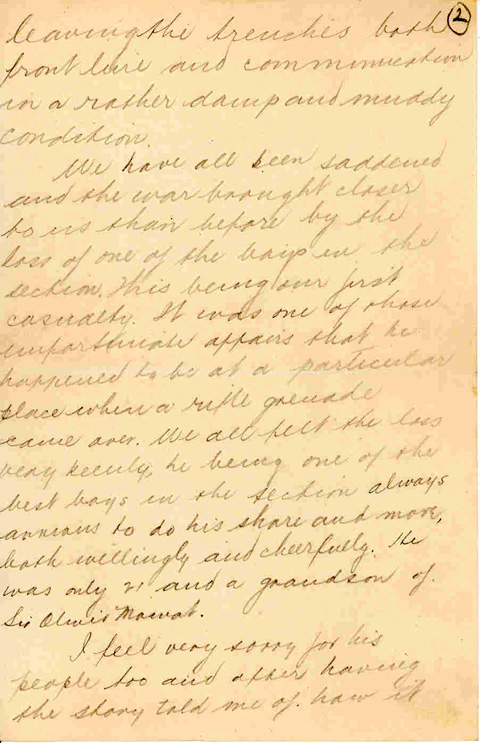 2
leaving the trenches both
front line and communication
in a rather damp and muddy
condition.
We have all been saddened
and the war brought closer
to us than before by the
loss of one of the boys in the
section, this being our first
casualty. It was one of those
unfortunate affairs that he
happened to be at a particular
place when a rifle grenade
came over. We all felt the loss
very keenly, he being one of the
best boys in the section always
anxious to do his share and more,
both willingly and cheerfully. He
was only 21 and a grandson of
Sir Oliver Mowat.
I feel very sorry for his
people too and after having
the story told me of how it